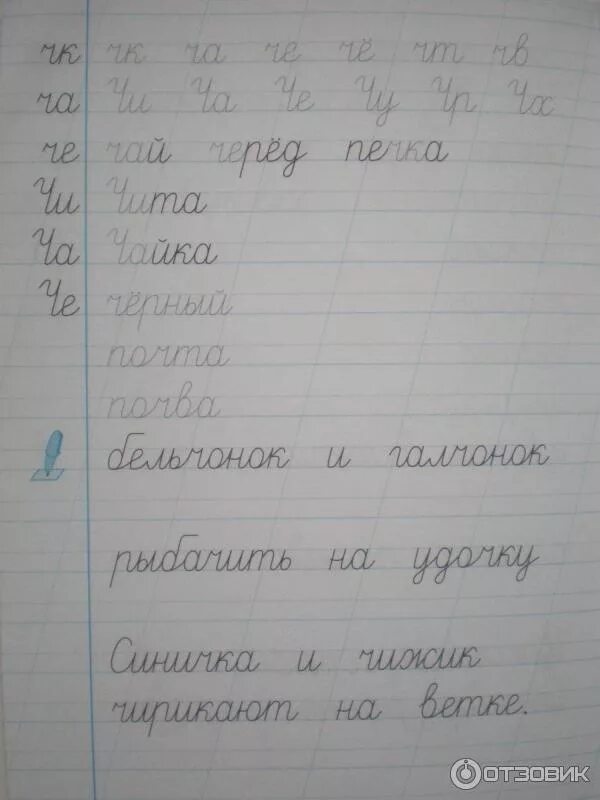 чк чк ча че чё чт чв
ча Чи Ча Че Чу Чр Чх
че чай черёд печка
Чи Чита
Ча Чайка
Че чёрный
почта
почва
бельчонок и галчонок
рыбачить на удочку
Синичка и чижик
чирикают на ветке.
ОТЗОВИК